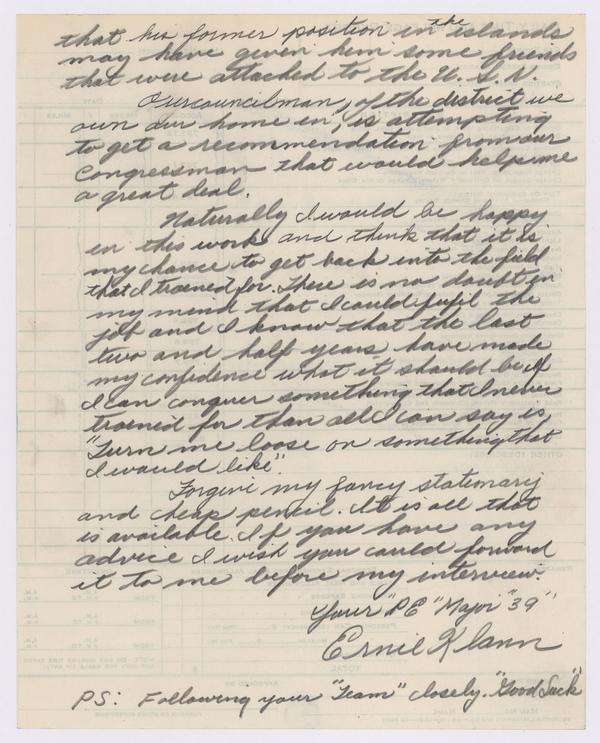 that his former position in the islands
may have given him some friends
that were attached to the U.S.N.
Our councilman, of the district we
own our home in, is attempting
to get a recommendation from our
Congressman that would help me
a great deal.
Naturally I would be happy
in this work and think that it is
my chance to get back into the field
that I trained for. There is no doubt in
my mind that I could fufil the
job and I know that the last
two and half years have made
my confidence what it should be. If
I can conquer something that I never
trained for than all I can say is
"Turn me loose on something that
I would like".
Forgive my fancy stationary
and cheap pencil. It is all that
is available. If you have any
advice I wish you could forward
it to me before my interview.
Your "P.E" Major "39"
Ernie Klann
PS: Following your "Team" closely. "Good Luck"